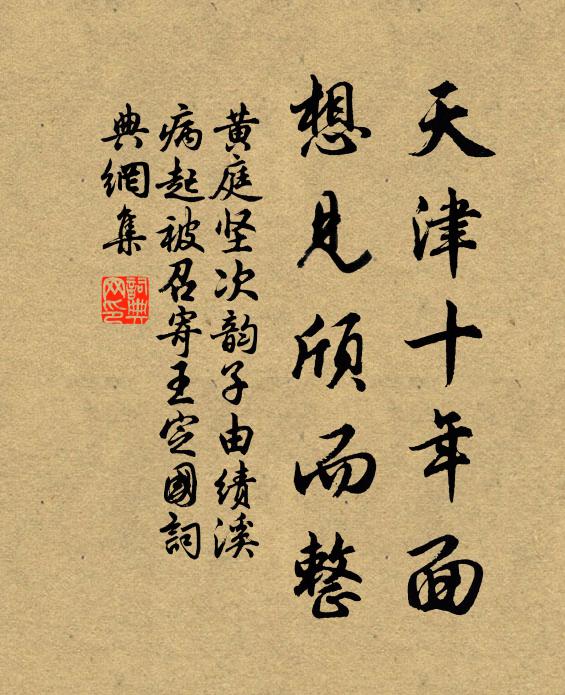 天津十年面
想见颀而整
黄庭坚次韵子由绩溪
病起被召寄王定國詞
典網集
詞典
网印